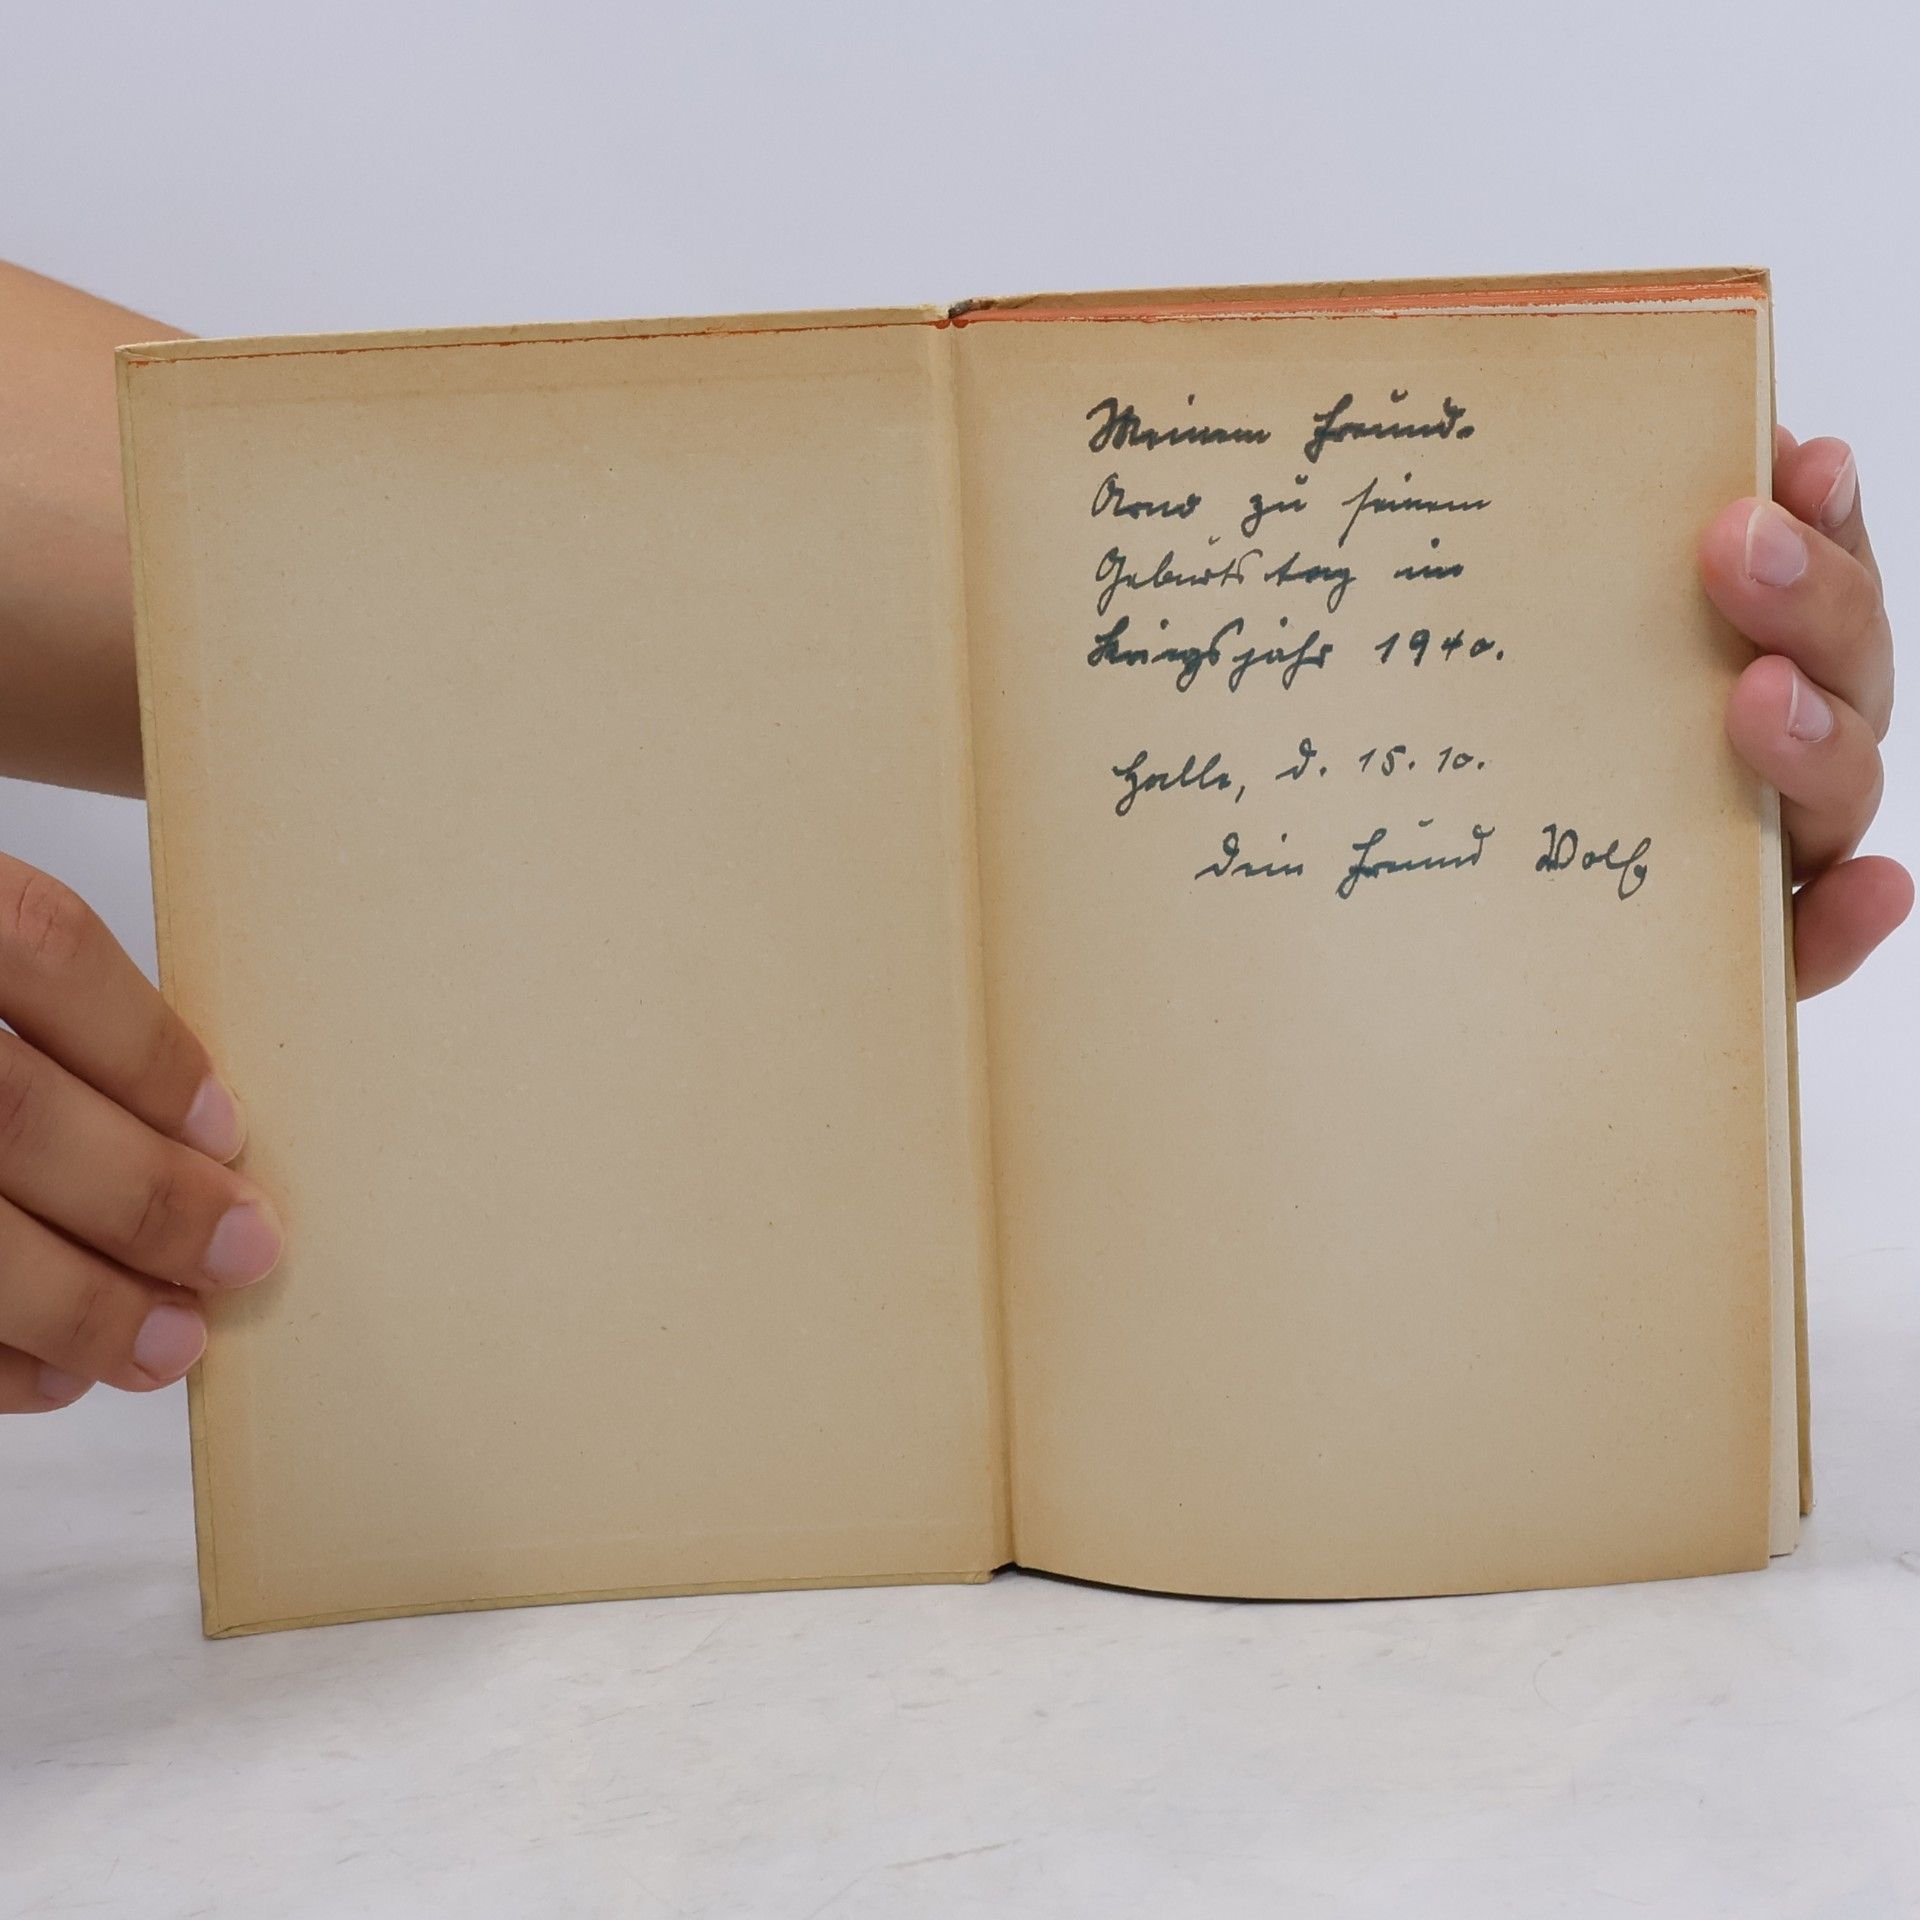 Meinem Freunde
Arno zu seinem
Geburtstag im
Kriegsjahr 1940.
Halle, d. 15. 10.
Dein Freund Wolf